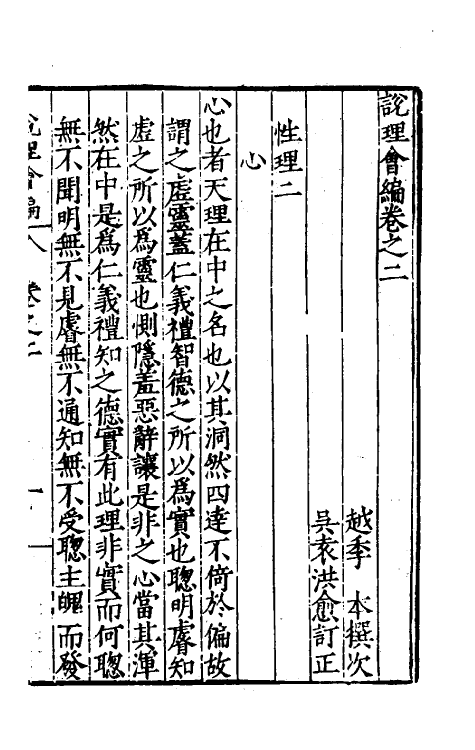 說理會編卷之二
越季　本撰次
吳袁洪愈訂正
性理二
心
心也者天理在中之名也以其洞然四達不倚於偏故
謂之虛靈蓋仁義禮智德之所以爲實也聰明睿知
虛之所以爲靈也惻隱羞惡辭讓是非之心當其渾
然在中是爲仁義禮知之德實有此理非實而何聰
無不聞明無不見睿無不通知無不受聰主魄而發
說理會編 卷之二 一